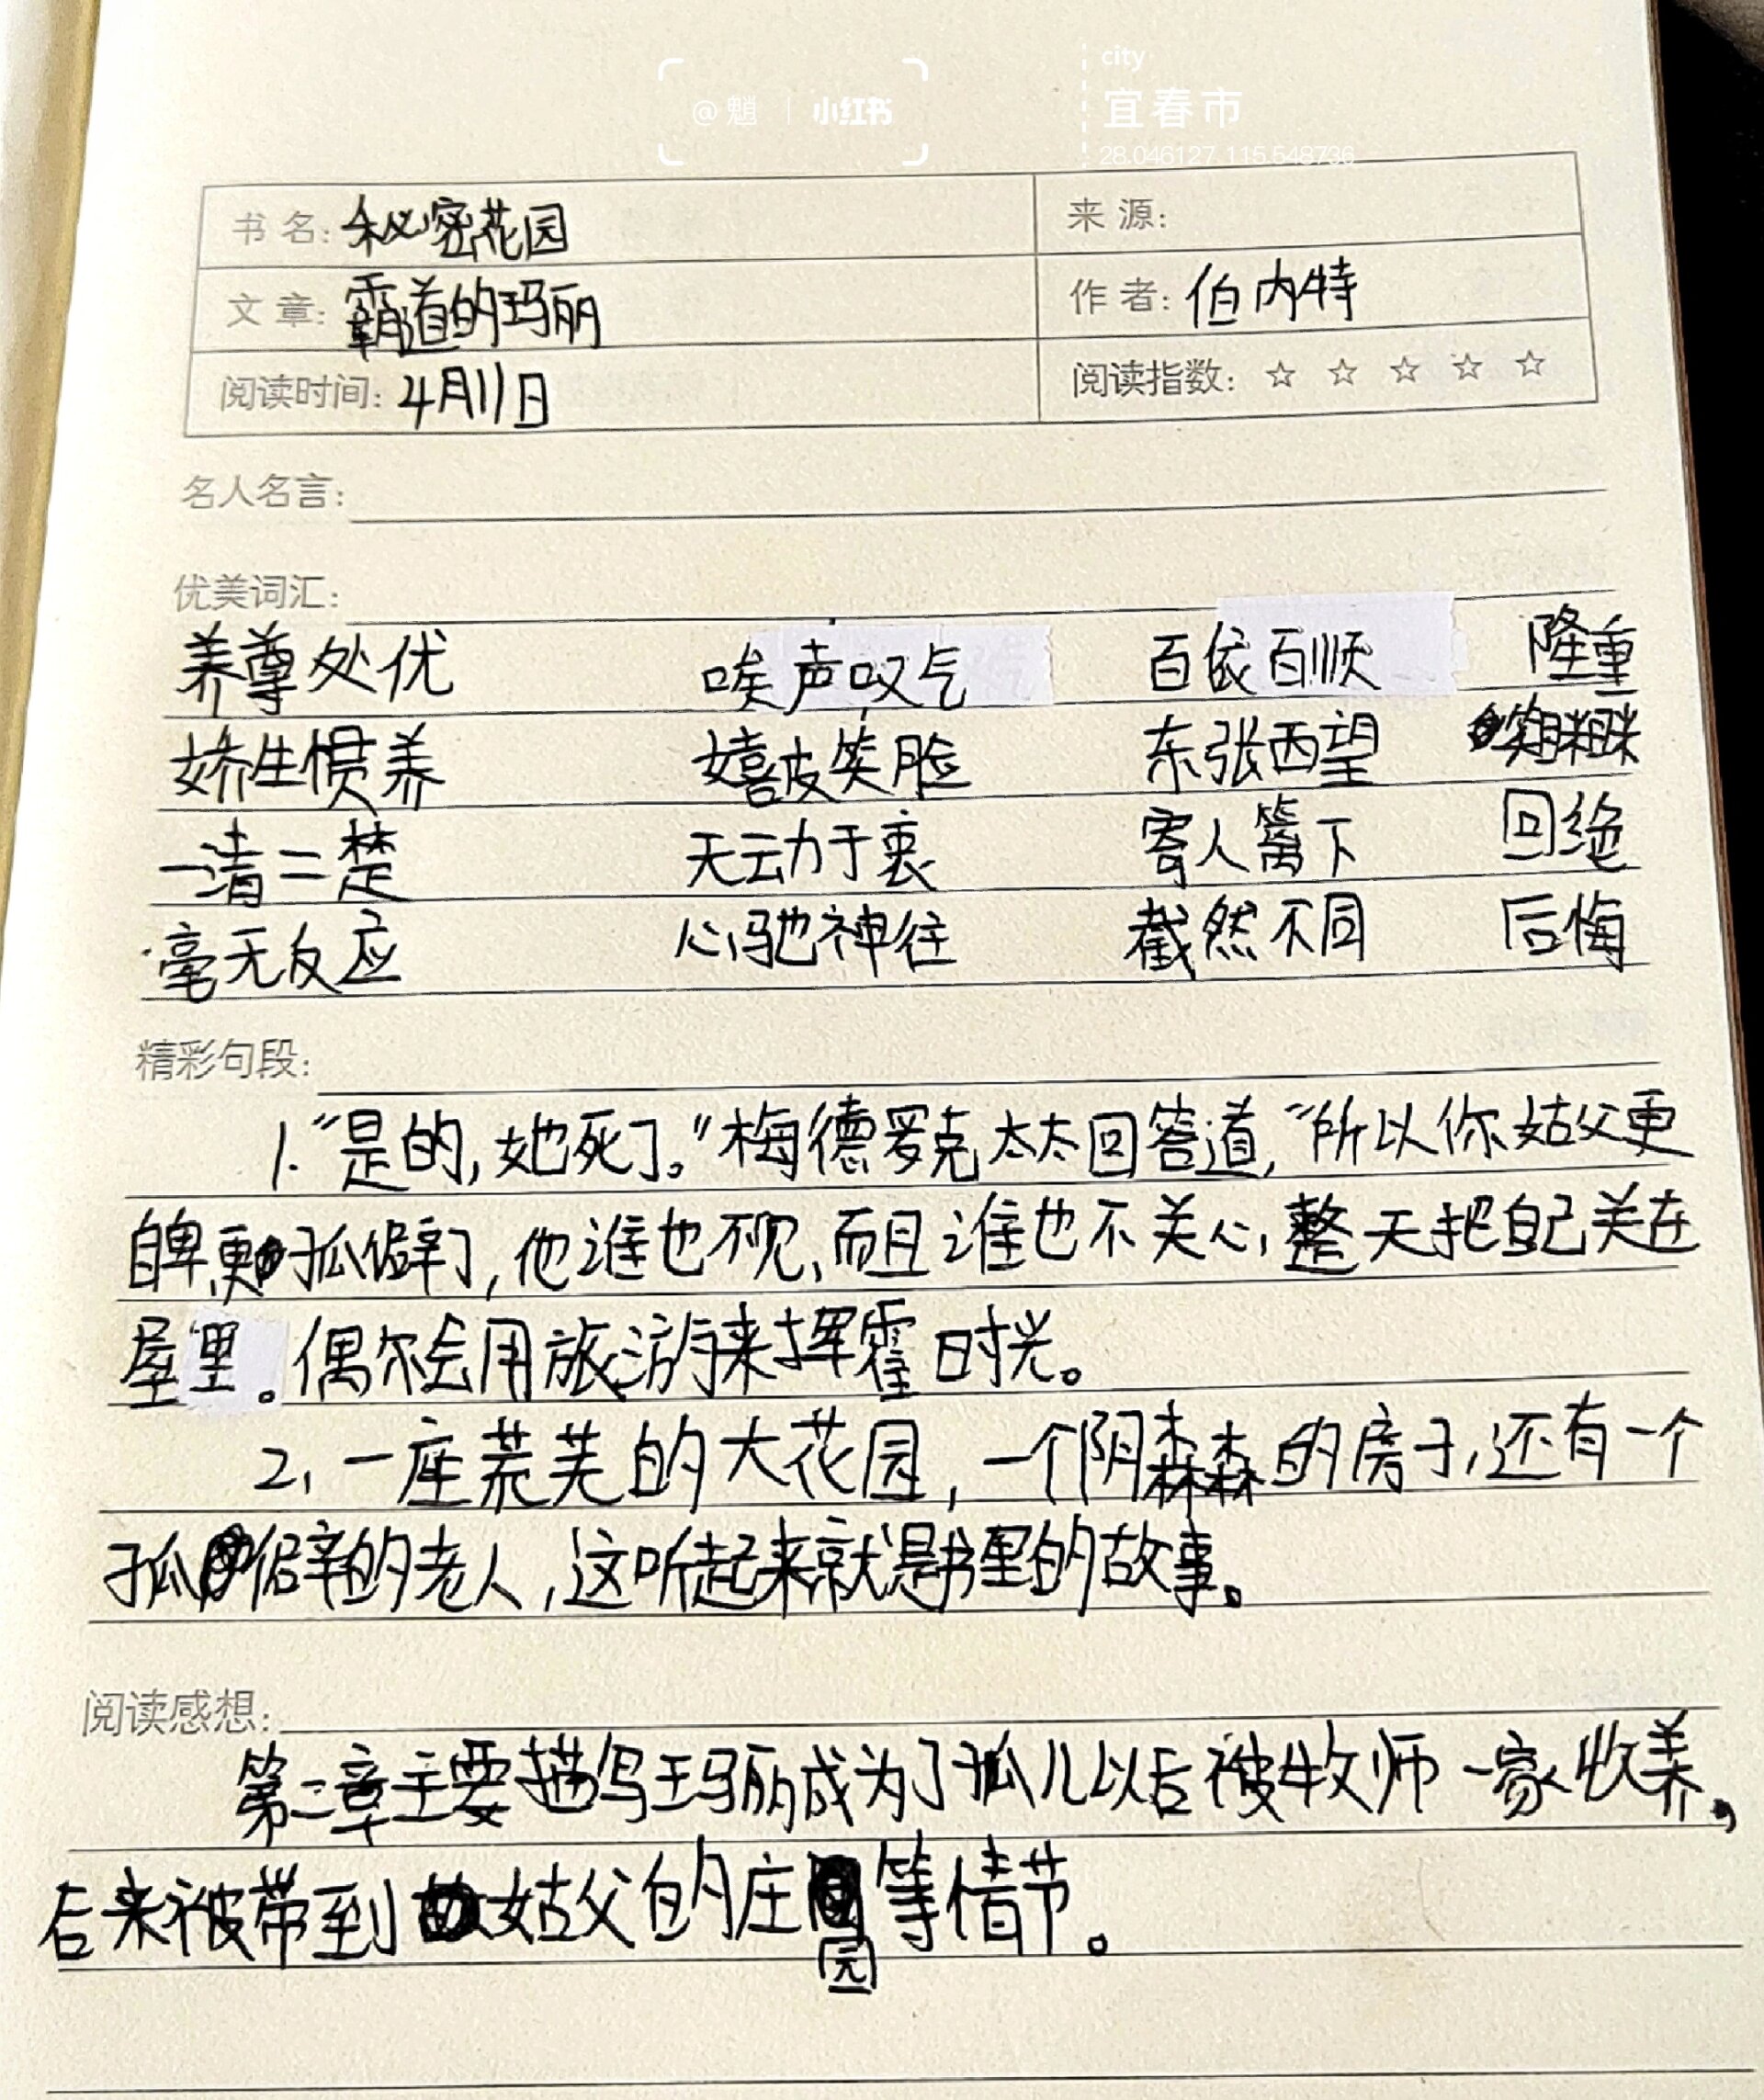 city
@魈 | 小红书
宜春市
28.046127 115.548736
书名: 秘密花园
来源:
文章: 霸道的玛丽
作者: 伯内特
阅读时间: 4月11日
阅读指数: ☆ ☆ ☆ ☆ ☆
名人名言:
优美词汇:
养尊处优 唉声叹气 百依百顺 隆重
娇生惯养 嬉皮笑脸 东张西望
一清二楚 无动于衷 寄人篱下 回绝
毫无反应 心驰神往 截然不同 后悔
精彩句段:
1."是的,她死了。"梅德罗克太太回答道,"所以你姑父更
自卑,更孤僻了,他谁也不见,而且谁也不关心,整天把自己关在
屋里。偶尔会用旅游来挥霍时光。
2,一座荒芜的大花园,一个阴森森的房子,还有一个
孤僻的老人,这听起来就是书里的故事。
阅读感想:
第二章主要描写玛丽成为了孤儿以后被牧师一家收养,
后来被带到姑父的庄园等情节。